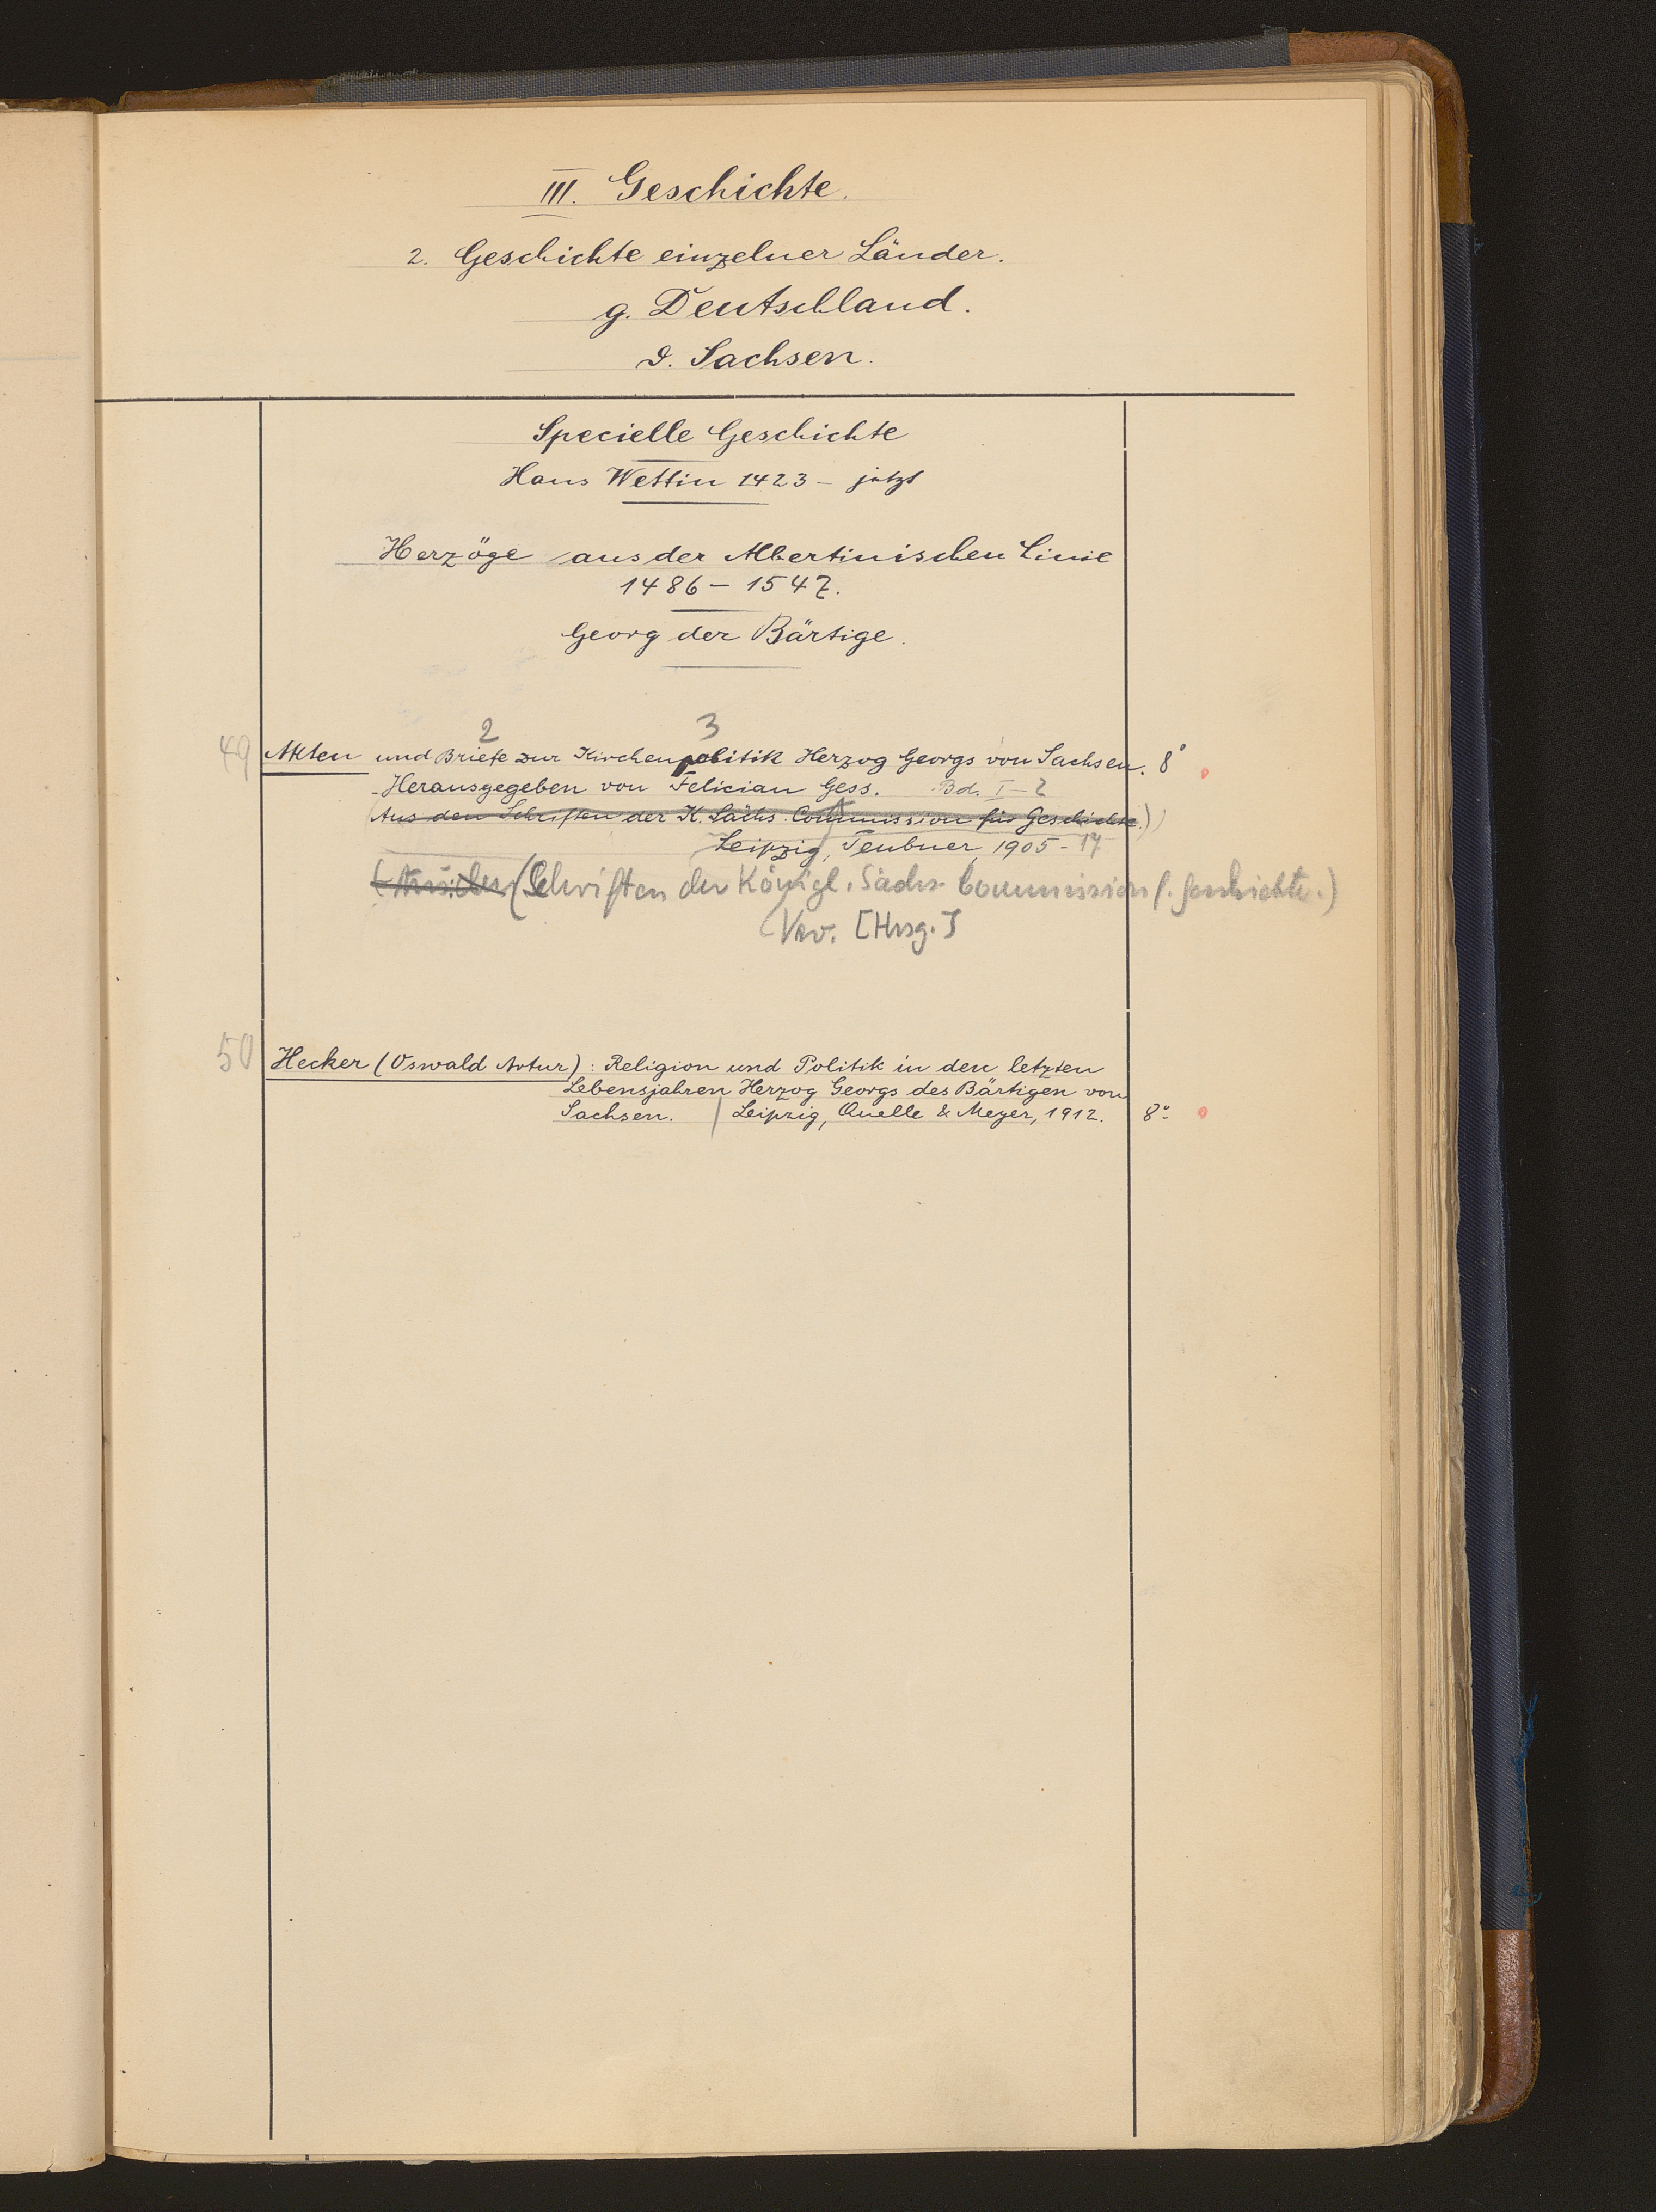 III. Geschichte.
2. Geschichte einzelner Länder.
g. Deutschland.
δ. Sachsen.
Specielle Geschichte
Haus Wettin 1423 - jetzt
Herzöge aus der Albertinischen Linie
1486 - 1547.
Georg der Bärtige.
2 3
49 Akten und Briefe zur Kirchenpolitik Herzog Georgs von Sachsen. 8°
Herausgegeben von Felician Gess. Bd. I-2
(Aus den Schriften der K. Sächs. Commission für Geschichte.)
Leipzig, Teubner, 1905 - 17
(Schriften der Königl. Sächs. Commission f. Geschichte.)
Verv. [Hrsg.]
50 Hecker (Oswald Artur): Religion und Politik in den letzten
Lebensjahren Herzog Georgs des Bärtigen von
Sachsen. / Leipzig, Quelle & Meyer, 1912. 8°